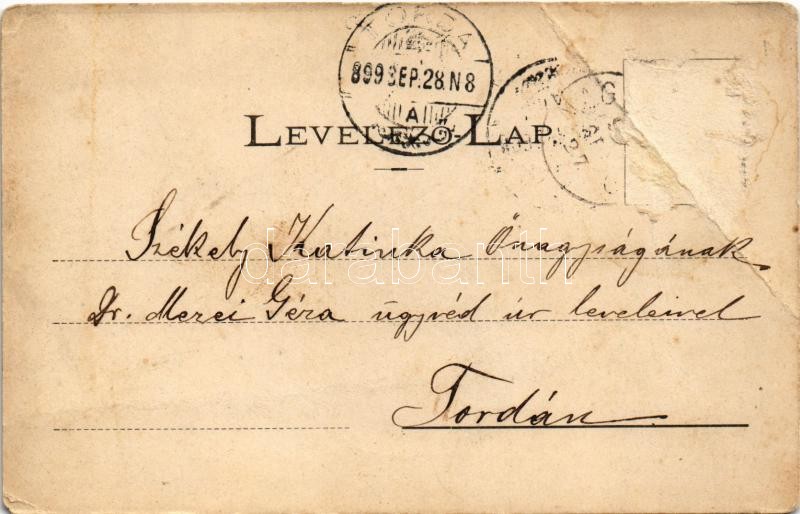 TORDA
899 SEP. 28. N 8
A
LEVELEZŐ-LAP
Székely Katinka Önagyságának
Dr. Mezei Géza ügyvéd úr leveleivel
Tordán
darabanth